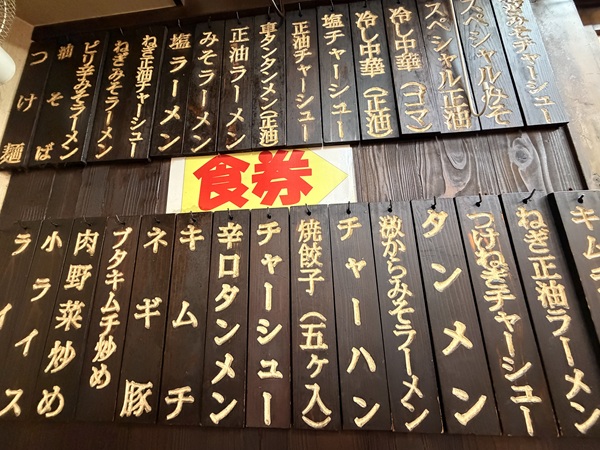 みそチャーシュー
スペシャルみそ
スペシャル正油
冷し中華（ゴマ）
冷し中華（正油）
塩チャーシュー
正油チャーシュー
タンタンメン（正油）
正油ラーメン
みそラーメン
塩ラーメン
ねぎ正油チャーシュー
ねぎみそラーメン
ピリ辛みそラーメン
油そば
つけ麺
食券
キム
ねぎ正油ラーメン
つけねぎチャーシュー
タンメン
激からみそラーメン
チャーハン
焼餃子（五ヶ入）
チャーシュー
辛口タンメン
キムチ
ネギ豚
ブタキムチ炒め
肉野菜炒め
小ライス
ライス